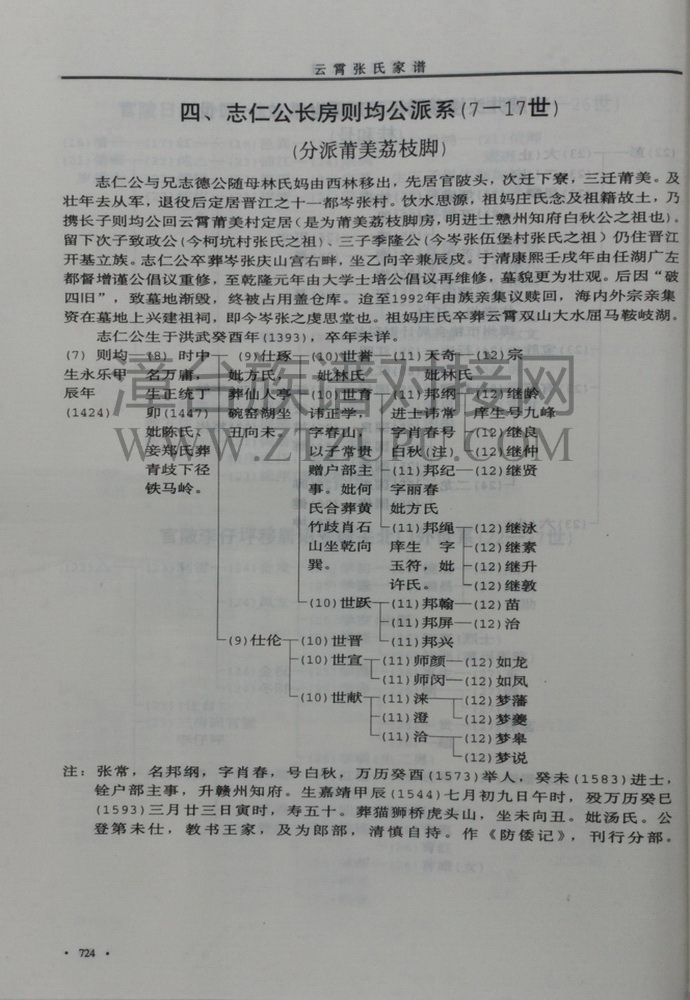 云霄张氏家谱
四、志仁公长房则均公派系(7—17世)
(分派莆美荔枝脚)
志仁公与兄志德公随母林氏妈由西林移出，先居官陂头，次迁下寮，三迁莆美。及
壮年去从军，退役后定居晋江之十一都岑张村。饮水思源，祖妈庄氏念及祖籍故土，乃
携长子则均公回云霄莆美村定居(是为莆美荔枝脚房，明进士戆州知府白秋公之祖也)。
留下次子致政公(今柯坑村张氏之祖)、三子季隆公(今岑张伍堡村张氏之祖)仍住晋江
开基立族。志仁公卒葬岑张庆山宫右畔，坐乙向辛兼辰戌。于清康熙壬戌年由任湖广左
都督增谨公倡议重修，至乾隆元年由大学士培公倡议再维修，墓貌更为壮观。后因“破
四旧”，致墓地渐毁，终被占用盖仓库。迨至1992年由族亲集议赎回，海内外宗亲集
资在墓地上兴建祖祠，即今岑张之虔思堂也。祖妈庄氏卒葬云霄双山大水屈马鞍岐湖。
志仁公生于洪武癸酉年(1393)，卒年未详。
(7) 则均—(8) 时中—(9)仕琢—(10)世誉—(11)天奇—(12)宗
生永乐甲 名万庸， 妣方氏， 妣林氏 妣林氏
辰年 生正统丁 葬仙人亭 (10)世育—(11)邦纲—(12)继龄
(1424) 卯(1447) 碗窑湖坐 讳正学， 进士讳常 庠生号九峰
妣陈氏、 丑向未。 字春山， 字肖春号 (12)继良
妾郑氏葬 以子常贵 白秋(注) (12)继仲
青歧下径 赠户部主 (11)邦纪—(12)继贤
铁马岭。 事。妣何 字丽春
氏合葬黄 妣方氏
竹歧肖石 (11)邦绳—(12)继泳
山坐乾向 庠生 字 (12)继素
巽。 玉符，妣 (12)继升
许氏。 (12)继敦
(10)世跃—(11)邦翰—(12)苗
(11)邦屏—(12)治
(9)仕伦—(10)世晋 (11)邦兴
(10)世宣—(11)师颜—(12)如龙
(11)师闵—(12)如凤
(10)世献—(11)涞—(12)梦藩
(11)澄 (12)梦夔
(11)洽—(12)梦皋
(12)梦说
注：张常，名邦纲，字肖春，号白秋，万历癸酉(1573)举人，癸未(1583)进士，
铨户部主事，升赣州知府。生嘉靖甲辰(1544)七月初九日午时，殁万历癸巳
(1593)三月廿三日寅时，寿五十。葬猫狮桥虎头山，坐未向丑。妣汤氏。公
登第未仕，教书王家，及为郎部，清慎自持。作《防倭记》，刊行分部。
·724·
漳台族谱对接网
WWW.ZTZUPU.COM